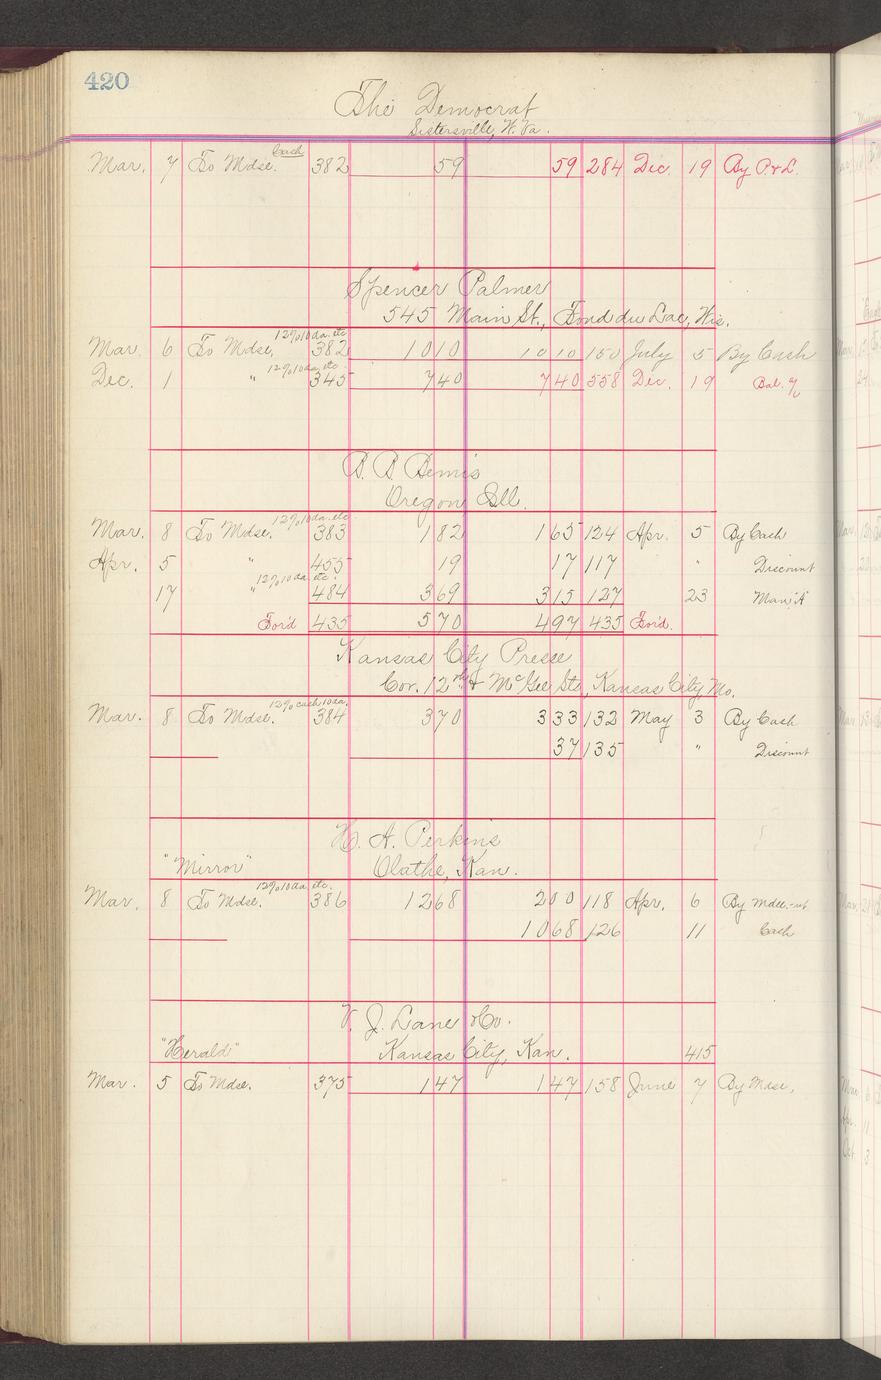 420
The Democrat
Sistersville, W. Va.
Cash
Mar. 7 To Mdse. 382 59 59 284 Dec. 19 By P. & L.
Spencer Palmer
545 Main St., Fond du Lac, Wis.
12% 10 da. etc
Mar. 6 To Mdse. 382 10 10 10 10 150 July 5 By Cash
12% 10 da. etc.
Dec. 1 " 345 7 40 7 40 558 Dec. 19 Bal. %
B. B. Bemis
Oregon Ill.
12% 10 da. etc.
Mar. 8 To Mdse. 383 1 82 1 65 124 Apr. 5 By Cash
Apr. 5 " 455 19 17 117 " Discount
12% 10 da. etc.
17 " 484 3 69 3 15 127 23 Man. "A"
For'd 435 5 70 4 97 435 For'd.
Kansas City Presse
Cor. 12th & McGee Sts, Kansas City Mo.
12% cash 10 da.
Mar. 8 To Mdse. 384 3 70 3 33 132 May 3 By Cash
37 135 " Discount
H. A. Perkins
"Mirror" Olathe, Kan.
12% 10 da. etc.
Mar. 8 To Mdse. 386 12 68 2 00 118 Apr. 6 By Mdse.-ret
10 68 126 11 Cash
V. J. Lane & Co.
"Herald" Kansas City, Kan. 415
Mar. 5 To Mdse. 375 1 47 1 47 158 June 7 By Mdse.